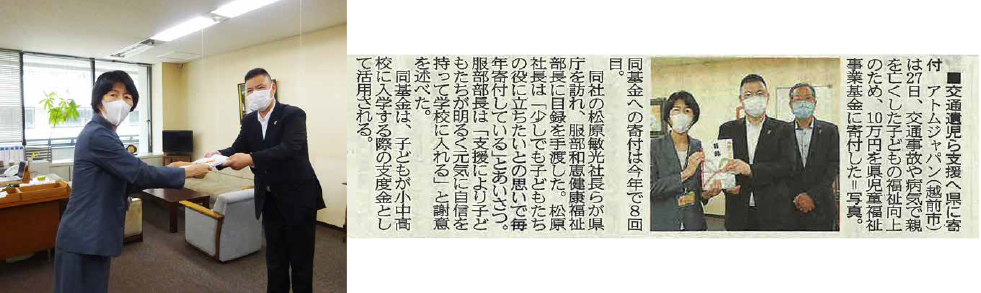 ■交通遺児ら支援へ県に寄
付　アトムジャパン（越前市）
は27日、交通事故や病気で親
を亡くした子どもの福祉向上
のため、10万円を県児童福祉
事業基金に寄付した＝写真。
同基金への寄付は今年で8回
目。
　同社の松原敏光社長らが県
庁を訪れ、服部和恵健康福祉
部長に目録を手渡した。松原
社長は「少しでも子どもたち
の役に立ちたいとの思いで毎
年寄付している」とあいさつ。
服部部長は「支援により子ど
もたちが明るく元気に自信を
持って学校に入れる」と謝意
を述べた。
　同基金は、子どもが小中高
校に入学する際の支度金とし
て活用される。